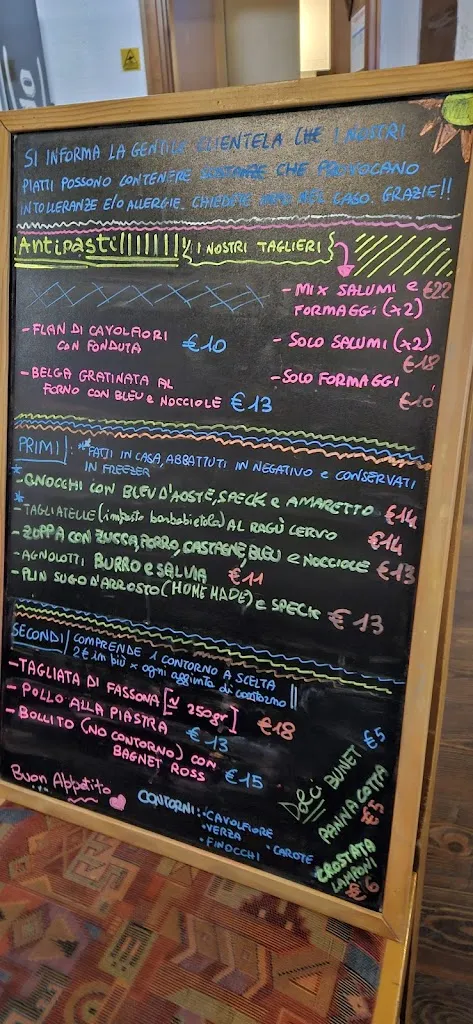 SI INFORMA LA GENTILE CLIENTELA CHE I NOSTRI
PIATTI POSSONO CONTENERE SOSTANZE CHE PROVOCANO
INTOLLERANZE E/O ALLERGIE. CHIEDERE NEL CASO. GRAZIE!!
Antipasti
I NOSTRI TAGLIERI
- MIX SALUMI e €22
FORMAGGI (x2)
- FLAN DI CAVOLFIORI
CON FONDUTA €10
- SOLO SALUMI (x2)
€18
- BELGA GRATINATA AL
FORNO CON BLEU e NOCCIOLE €13
- SOLO FORMAGGI
€10
PRIMI: *FATTI IN CASA, ABBATTUTI IN NEGATIVO e CONSERVATI
IN FREEZER
*- GNOCCHI CON BLEU D'AOSTE, SPECK e AMARETTO €14
*- TAGLIATELLE (impasto barbabietola) AL RAGÙ CERVO €14
- ZUPPA CON ZUCCA, PORRO, CASTAGNE, BLEU e NOCCIOLE €13
- AGNOLOTTI BURRO e SALVIA €11
- PLIN SUGO D'ARROSTO (HOME MADE) e SPECK €13
SECONDI COMPRENDE 1 CONTORNO A SCELTA
2€ in più x ogni aggiunta di contorno!!
- TAGLIATA DI FASSONA [~ 250gr] €18
- POLLO ALLA PIASTRA €13
- BOLLITO (NO CONTORNO) CON
BAGNET ROSS €15
Buon Appetito
CONTORNI: • CAVOLFIORE
• VERZA • CAROTE
• FINOCCHI
Dolci BUNET €5
PANNA COTTA
€5
CROSTATA
LAMPONI
€6